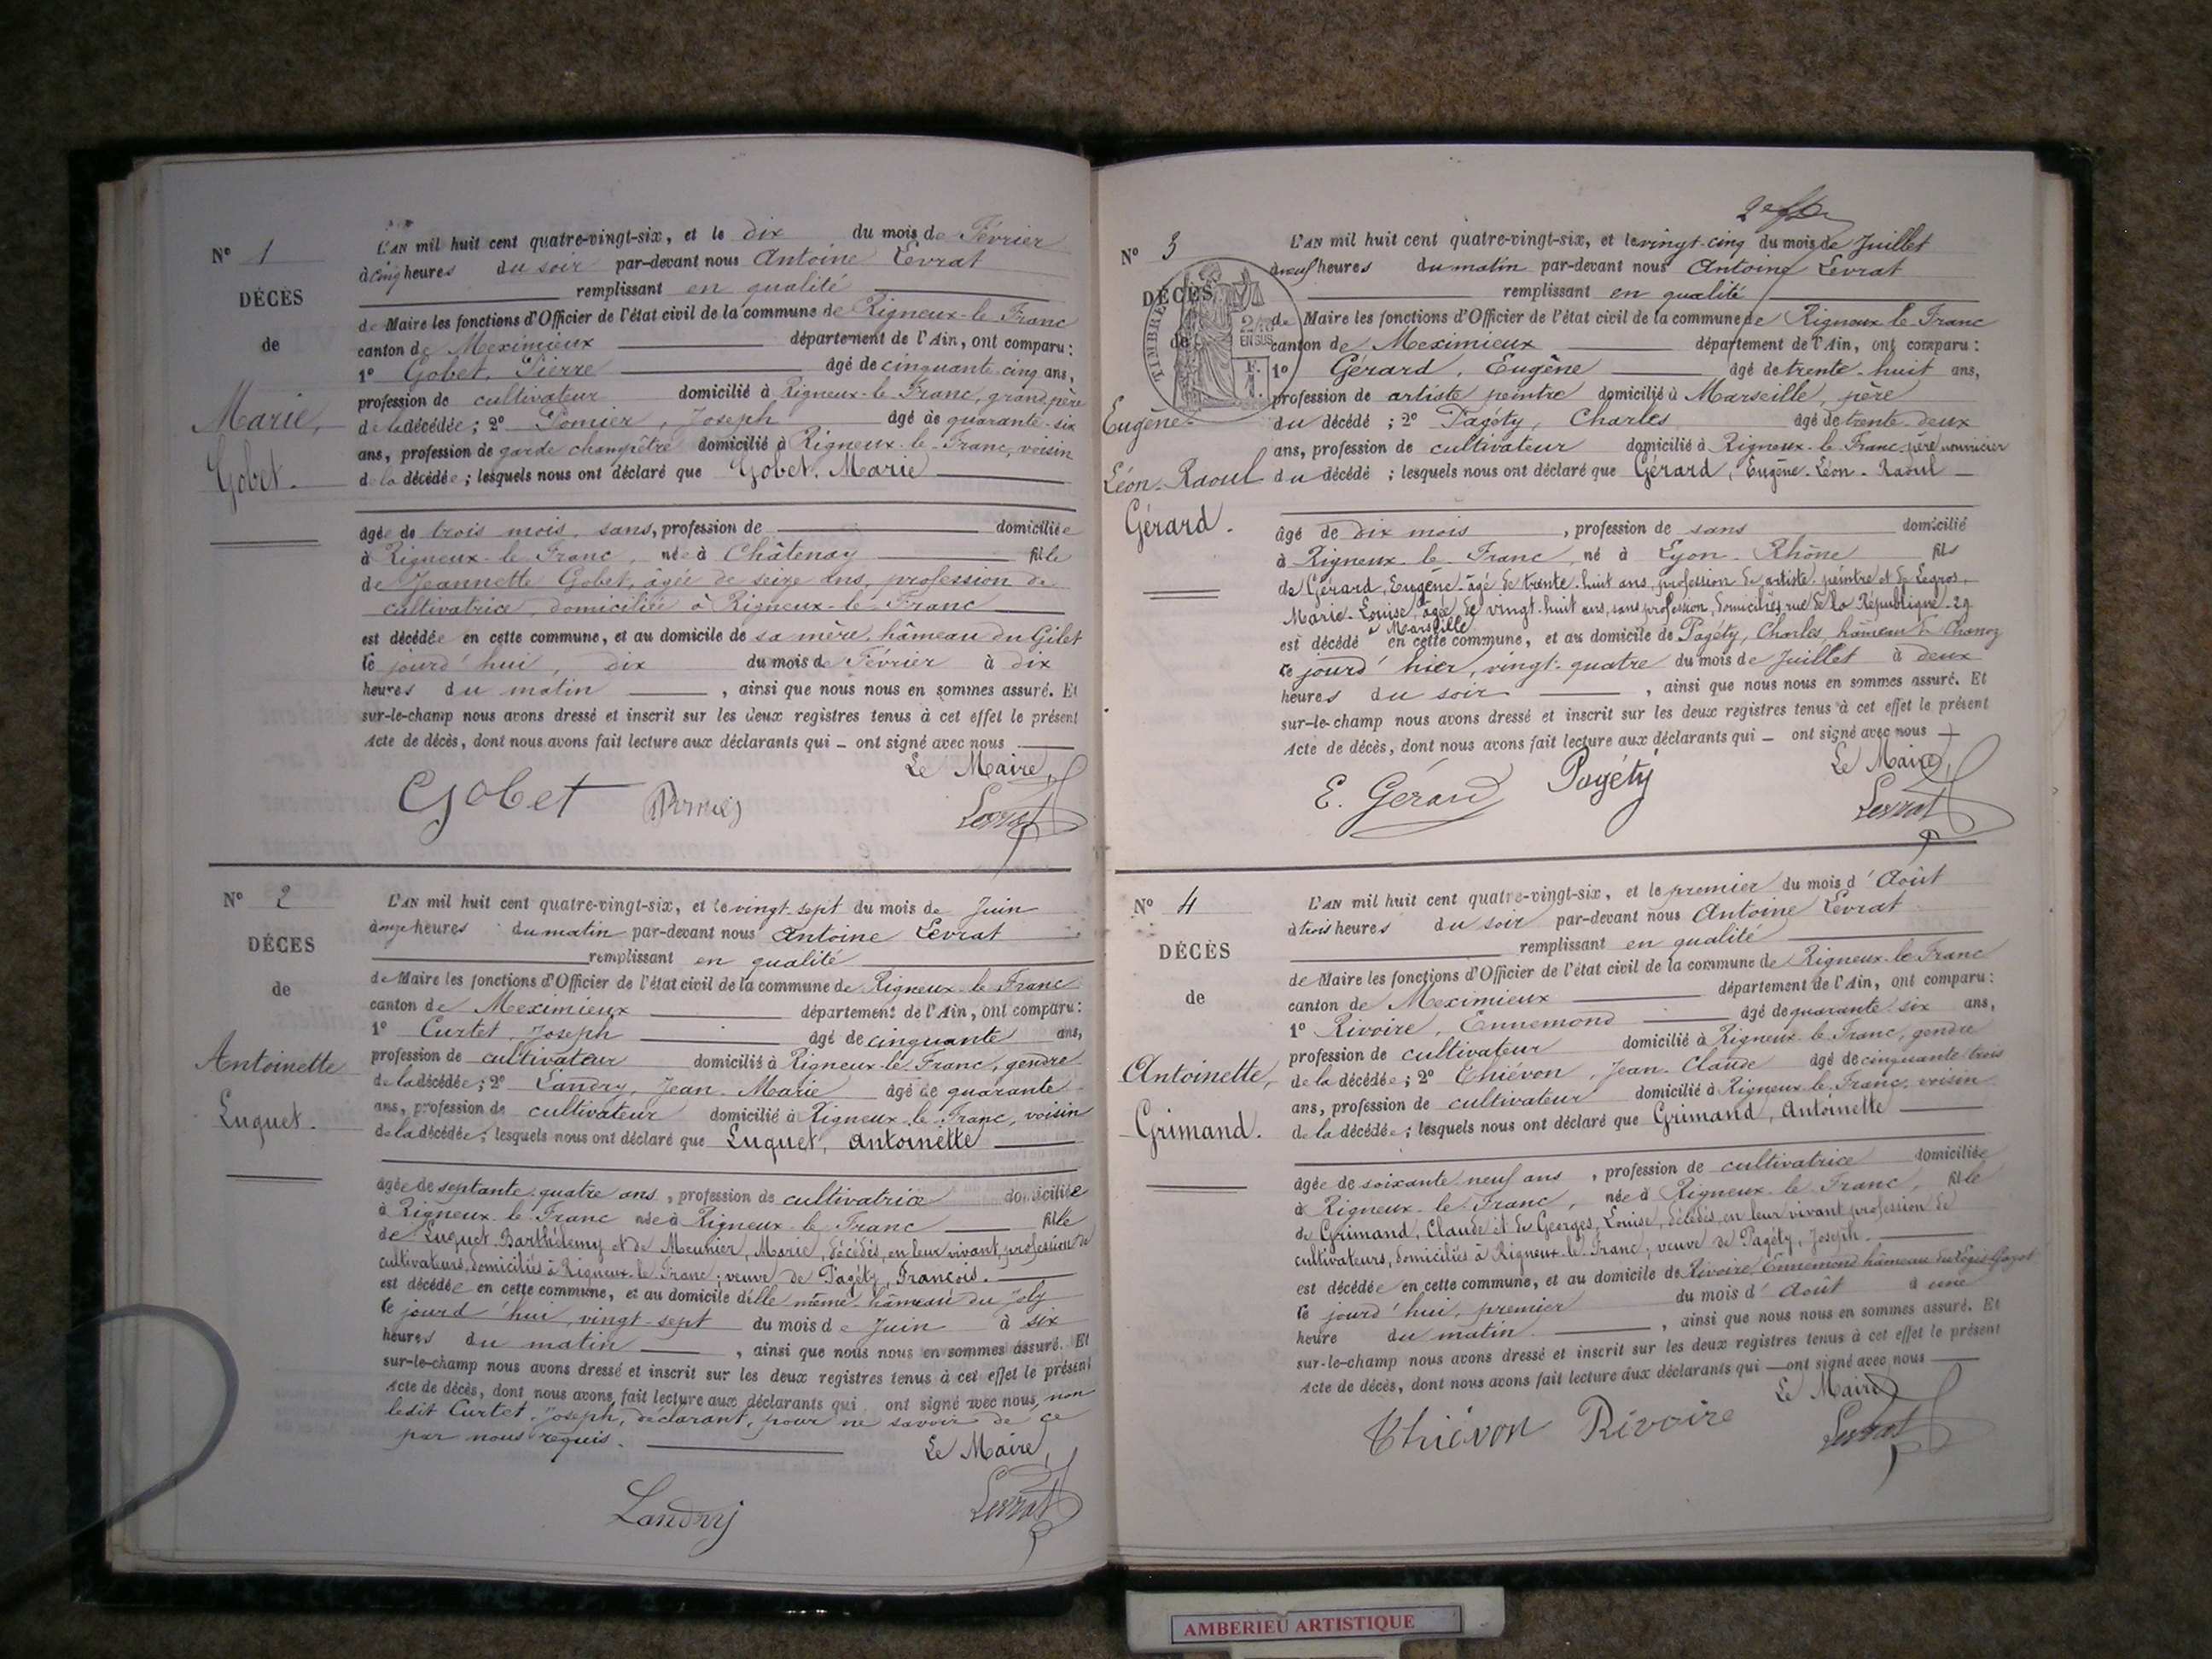 N° 1
DÉCÈS
de
Marie,
Gobet.
L'AN mil huit cent quatre-vingt-six, et le dix du mois de Février
à cinq heures du soir par-devant nous Antoine Levrat
remplissant en qualité
de Maire les fonctions d'Officier de l'état civil de la commune de Rigneux-le-Franc
canton de Meximieux département de l'Ain, ont comparu :
1° Gobet, Pierre âgé de cinquante-cinq ans,
profession de cultivateur domicilié à Rigneux-le-Franc, grand père
de la décédée ; 2° Pomier, Joseph âgé de quarante-six
ans, profession de garde champêtre domicilié à Rigneux-le-Franc, voisin
de la décédée ; lesquels nous ont déclaré que Gobet, Marie
âgée de trois mois, sans, profession de domiciliée
à Rigneux-le-Franc, née à Châtenay fille
de Jeannette Gobet, âgée de seize ans, profession de
cultivatrice, domiciliée à Rigneux-le-Franc
est décédée en cette commune, et au domicile de sa mère, hâmeau du Gilet
le jourd'hui, dix du mois de Février à dix
heures du matin , ainsi que nous nous en sommes assuré. Et
sur-le-champ nous avons dressé et inscrit sur les deux registres tenus à cet effet le présent
Acte de décès, dont nous avons fait lecture aux déclarants qui ont signé avec nous
Le Maire,
Gobet Levrat
N° 2
DÉCES
de
Antoinette
Luquet.
L'AN mil huit cent quatre-vingt-six, et le vingt-sept du mois de Juin
à onze heures du matin par-devant nous Antoine Levrat
remplissant en qualité
de Maire les fonctions d'Officier de l'état civil de la commune de Rigneux-le-Franc
canton de Meximieux département de l'Ain, ont comparu :
1° Curtet, Joseph âgé de cinquante ans,
profession de cultivateur domicilié à Rigneux-le-Franc, gendre
de la décédée ; 2° Landry, Jean-Marie âgé de quarante
ans, profession de cultivateur domicilié à Rigneux-le-Franc, voisin
de la décédée ; lesquels nous ont déclaré que Luquet, Antoinette
âgée de septante-quatre ans, profession de cultivatrice domiciliée
à Rigneux-le-Franc née à Rigneux-le-Franc fille
de Luquet Barthélemy et de Meunier, Marie, décédés, en leur vivant, profession de
cultivateurs, domiciliés à Rigneux-le-Franc ; veuve de Pagéty, François.
est décédée en cette commune, et au domicile d'elle même, hâmeau du Joly
le jourd'hui, vingt-sept du mois de Juin à six
heures du matin , ainsi que nous nous en sommes assuré. Et
sur-le-champ nous avons dressé et inscrit sur les deux registres tenus à cet effet le présent
Acte de décès, dont nous avons fait lecture aux déclarants qui ont signé avec nous, non
ledit Curtet, Joseph, déclarant, pour ne savoir de ce
par nous requis.
Le Maire,
Landry Levrat
N° 3
DÉCÈS
de
TIMBRE
2/10
EN SUS
Eugène-
Léon-Raoul
Gérard.
L'AN mil huit cent quatre-vingt-six, et le vingt-cinq du mois de Juillet
à neuf heures du matin par-devant nous Antoine Levrat
remplissant en qualité
de Maire les fonctions d'Officier de l'état civil de la commune de Rigneux le Franc
canton de Meximieux département de l'Ain, ont comparu :
1° Gérard, Eugène âgé de trente-huit ans,
profession de artiste peintre domicilié à Marseille, père
du décédé ; 2° Pagéty, Charles âgé de trente-deux
ans, profession de cultivateur domicilié à Rigneux-le-Franc, père nourricier
du décédé ; lesquels nous ont déclaré que Gérard, Eugène-Léon-Raoul
âgé de dix mois , profession de sans domicilié
à Rigneux-le-Franc, né à Lyon-Rhône fils
de Gérard, Eugène-âgé de trente-huit ans, profession de artiste-peintre et de Legros,
Marie-Louise, âgée de vingt-huit ans, sans profession, domiciliés, rue de la République-29
à Marseille
est décédé en cette commune, et au domicile de Pagéty, Charles, hâmeau de Chanoz
le jourd'hier, vingt-quatre du mois de Juillet à deux
heures du soir , ainsi que nous nous en sommes assuré. Et
sur-le-champ nous avons dressé et inscrit sur les deux registres tenus à cet effet le présent
Acte de décès, dont nous avons fait lecture aux déclarants qui ont signé avec nous
Le Maire,
E. Gérard Pagéty Levrat
N° 4
DÉCÈS
de
Antoinette,
Grimand.
L'AN mil huit cent quatre-vingt-six, et le premier du mois d'Août
à trois heures du soir par-devant nous Antoine Levrat
remplissant en qualité
de Maire les fonctions d'Officier de l'état civil de la commune de Rigneux-le-Franc
canton de Meximieux département de l'Ain, ont comparu :
1° Rivoire, Ennemond âgé de quarante-six ans,
profession de cultivateur domicilié à Rigneux-le-Franc, gendre
de la décédée ; 2° Thiévon, Jean-Claude âgé de cinquante trois
ans, profession de cultivateur domicilié à Rigneux-le-Franc, voisin
de la décédée ; lesquels nous ont déclaré que Grimand, Antoinette
âgée de soixante-neuf ans , profession de cultivatrice domiciliée
à Rigneux-le-Franc, née à Rigneux-le-Franc, fille
de Grimand, Claude et de Georges, Louise, décédés, en leur vivant profession de
cultivateurs, domiciliés à Rigneux-le-Franc ; veuve de Pagéty, Joseph.
est décédée en cette commune, et au domicile de Rivoire, Ennemond hâmeau
le jourd'hui, premier du mois d'Août à une
heure du matin , ainsi que nous nous en sommes assuré. Et
sur-le-champ nous avons dressé et inscrit sur les deux registres tenus à cet effet le présent
Acte de décès, dont nous avons fait lecture aux déclarants qui ont signé avec nous
Le Maire
Thiévon Rivoire Levrat
AMBERIEU ARTISTIQUE